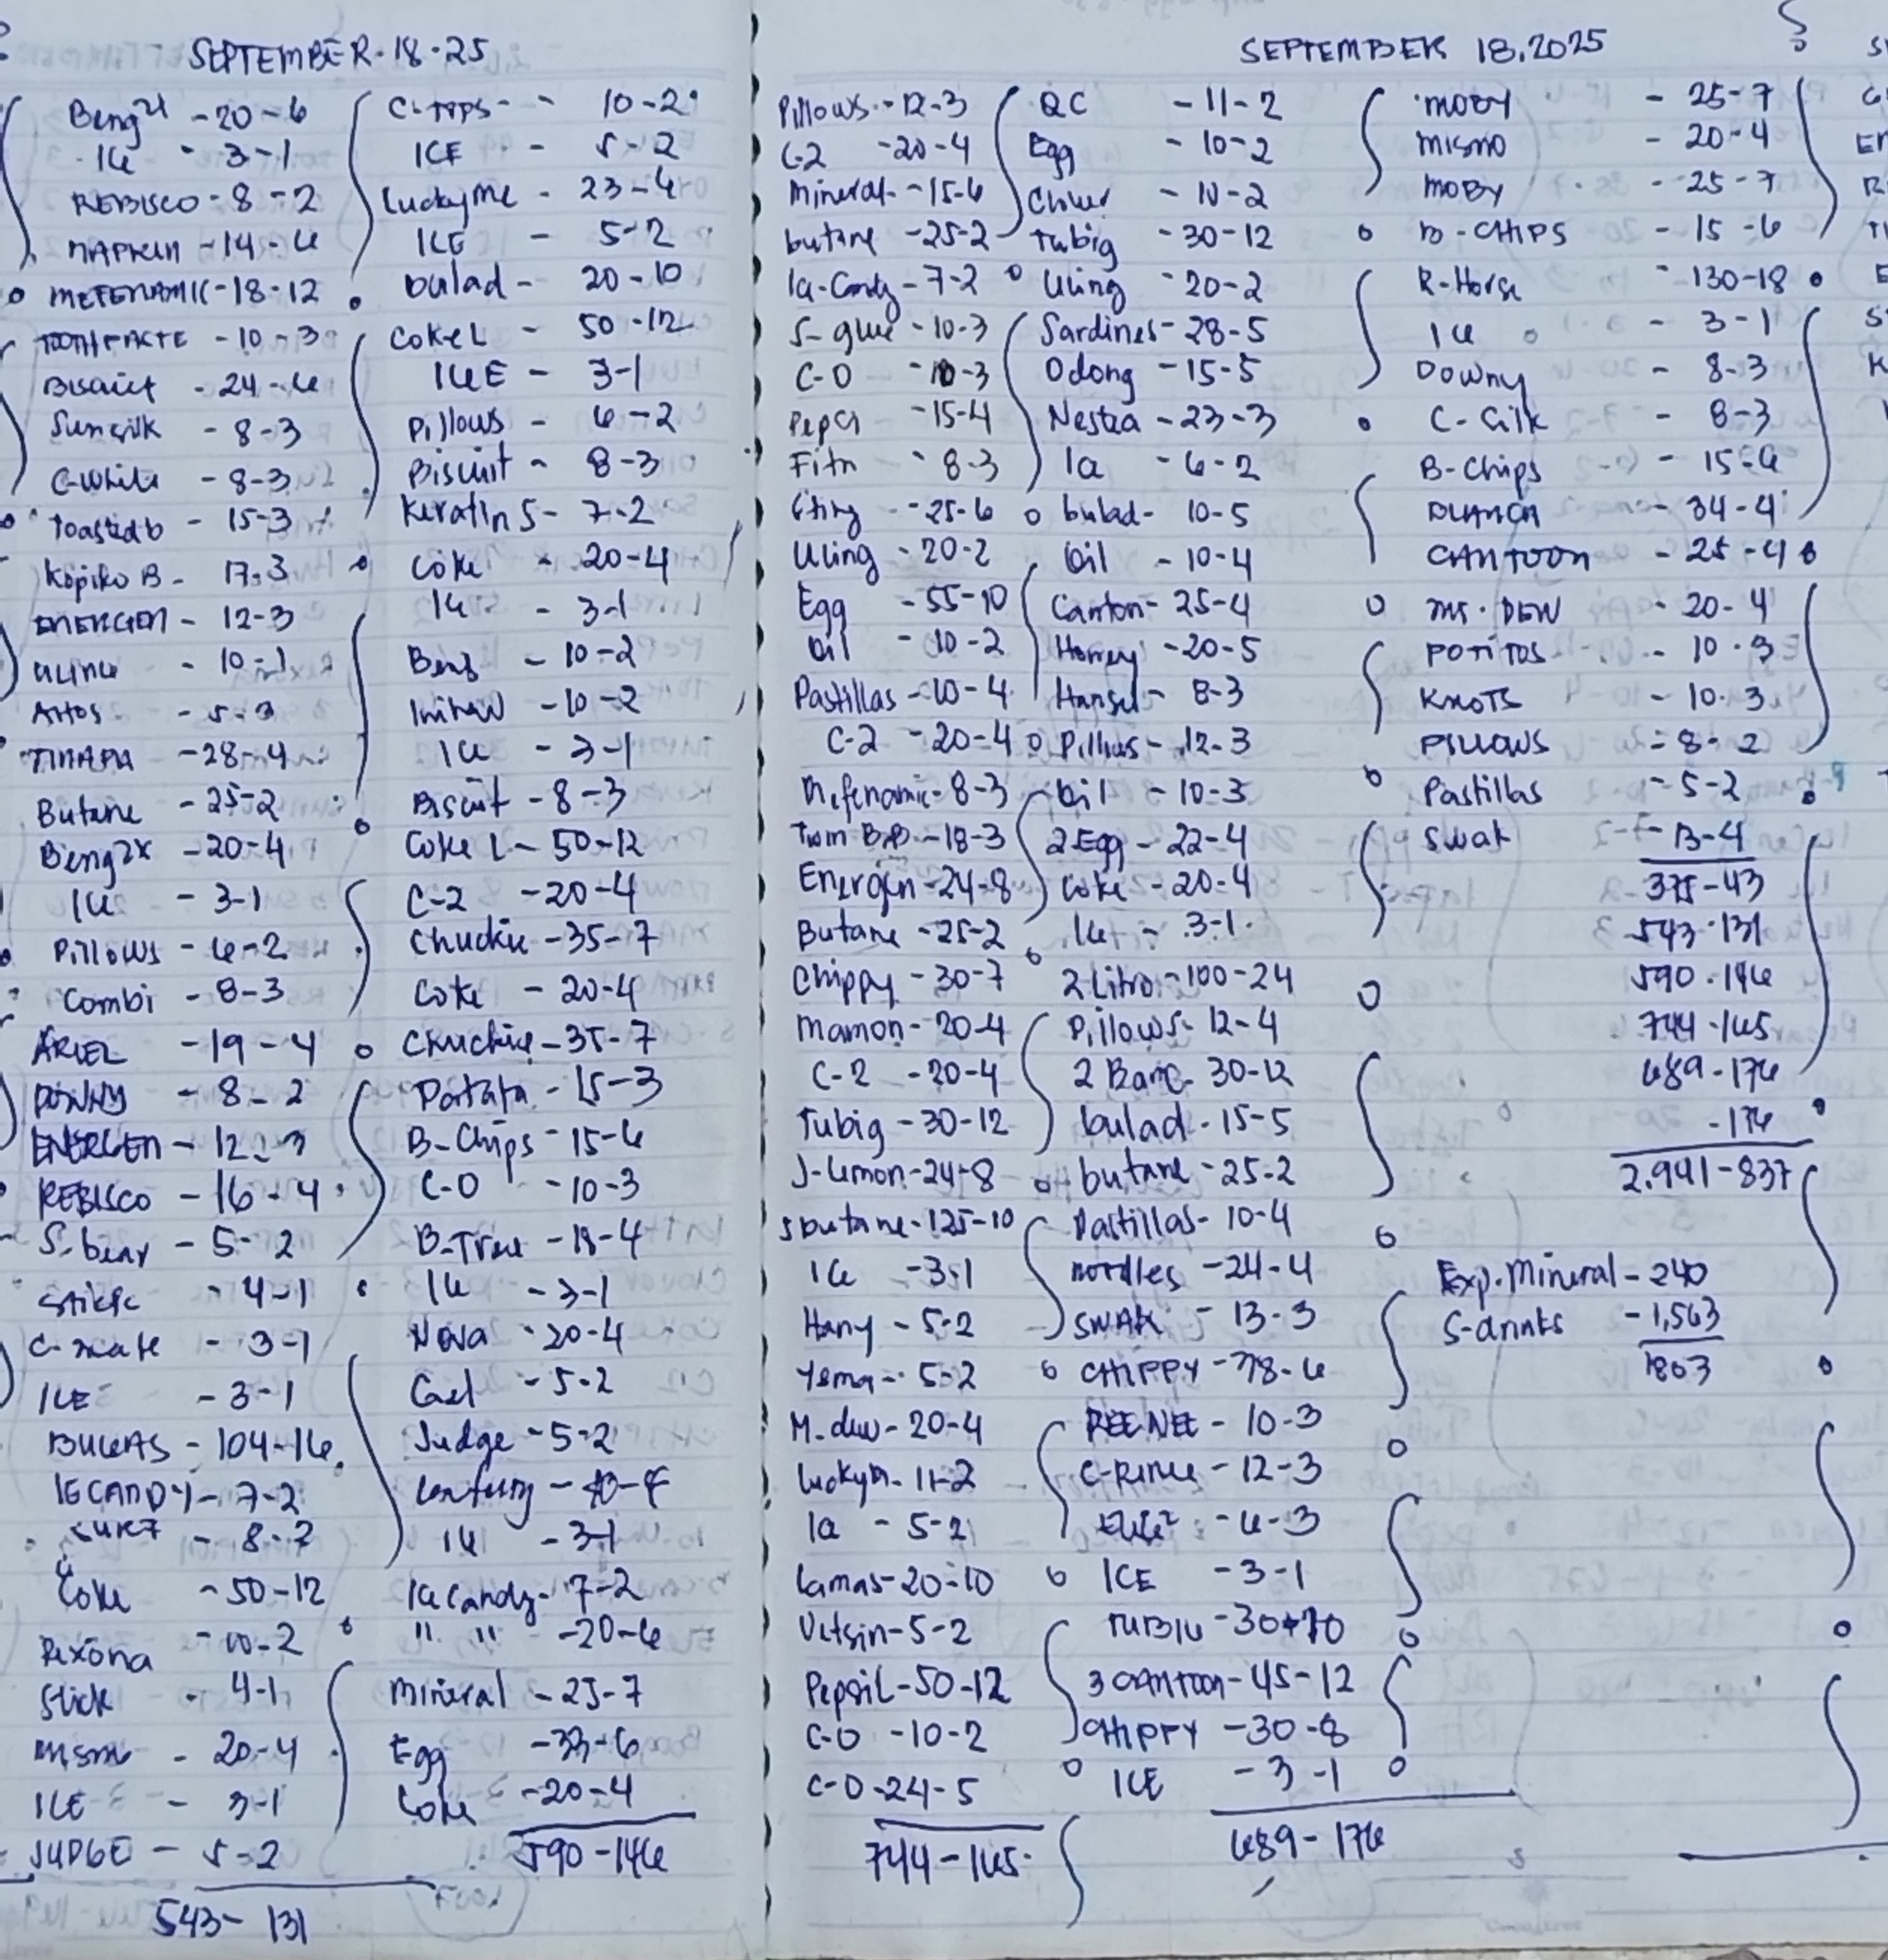 SEPTEMBER-18-25
Beng21 - 20-6
ICE - 3-1
REBISCO - 8-2
NAPKIN - 14-6
MEFENAMIC - 18-12
TOOTHPASTE - 10-3
Biscuit - 24-6
Sunsilk - 8-3
C-white - 8-3
Toastedb - 15-3
Kopiko B - 17-3
ENERGEN - 12-3
ULING - 10-1
Attos - 5-3
TINAPA - 28-4
Butane - 25-2
Beng2x - 20-4
ICE - 3-1
Pillows - 6-2
Combi - 8-3
ARIEL - 19-4
DOWNY - 8-2
ENERGEN - 12-3
REBISCO - 16-4
S-bear - 5-2
Stick - 4-1
C-mate - 3-1
ICE - 3-1
BUGAS - 104-16
ICECANDY - 7-2
SURF - 8-2
Coke - 50-12
Rexona - 10-2
Stick - 4-1
Mismo - 20-4
ICE - 3-1
JUDGE - 5-2
543 - 131
C-tops - 10-2
ICE - 5-2
Luckyme - 23-4
ICE - 5-2
bulad - 20-10
Coke L - 50-12
ICE - 3-1
Pillows - 6-2
Biscuit - 8-3
Keratin S - 7-2
Coke - 20-4
ICE - 3-1
Beng - 10-2
Inihaw - 10-2
ICE - 3-1
Biscuit - 8-3
Coke L - 50-12
C-2 - 20-4
Chuckie - 35-7
Coke - 20-4
Chuckie - 35-7
Patata - 15-3
B-Chips - 15-6
C-O - 10-3
B-Tree - 18-4
ICE - 3-1
Nova - 20-4
Gel - 5-2
Judge - 5-2
Century - 40-4
ICE - 3-1
Ice Candy - 7-2
" " - 20-6
Mineral - 25-7
Egg - 33-6
Coke - 20-4
590 - 146
SEPTEMBER 18, 2025
Pillows - 12-3
C-2 - 20-4
Mineral - 15-6
butane - 25-2
Ice-Candy - 7-2
S-glue - 10-3
C-O - 10-3
Pepsi - 15-4
Fita - 8-3
Sting - 25-6
Uling - 20-2
Egg - 55-10
Oil - 10-2
Pastillas - 10-4
C-2 - 20-4
Mefenamic - 8-3
Twin B.B - 18-3
Energen - 24-8
Butane - 25-2
Chippy - 30-7
Mamon - 20-4
C-2 - 20-4
Tubig - 30-12
J-Lemon - 24-8
5 butane - 125-10
ICE - 3-1
Hany - 5-2
Yema - 5-2
M. dew - 20-4
Luckym - 11-2
Ice - 5-2
Lamas - 20-10
Vetsin - 5-2
Pepsi L - 50-12
C-O - 10-2
C-O - 24-5
744 - 165
QC - 11-2
Egg - 10-2
Clover - 10-2
Tubig - 30-12
Uling - 20-2
Sardines - 28-5
Odong - 15-5
Nestea - 23-3
Ice - 6-2
bulad - 10-5
Oil - 10-4
Canton - 25-4
Honey - 20-5
Hansel - 8-3
Pillows - 12-3
Oil - 10-3
2 Egg - 22-4
Coke - 20-4
Ice - 3-1
2 Litro - 100-24
Pillows - 12-4
2 Bang - 30-12
bulad - 15-5
butane - 25-2
Pastillas - 10-4
noodles - 24-4
SWAK - 13-3
CHIPPY - 78-6
REENEE - 10-3
C-Rinse - 12-3
- 6-3
ICE - 3-1
TUBIG - 30-10
3 CANTOON - 45-12
CHIPPY - 30-8
ICE - 3-1
689 - 176
MOBY - 25-7
MISMO - 20-4
MOBY - 25-7
B-CHIPS - 15-6
R-Horse - 130-18
ICE - 3-1
Downy - 8-3
C-Silk - 8-3
B-Chips - 15-6
BLANCA - 34-4
CANTOON - 25-4
MT. DEW - 20-4
POTITOS - 10-3
KNOTS - 10-3
PILLOWS - 8-2
Pastillas - 5-2
Swak - 13-4
375-43
543-131
590-146
744-165
689-176
-176
2,941-837
Exp. Mineral - 240
S-drinks - 1,563
1803